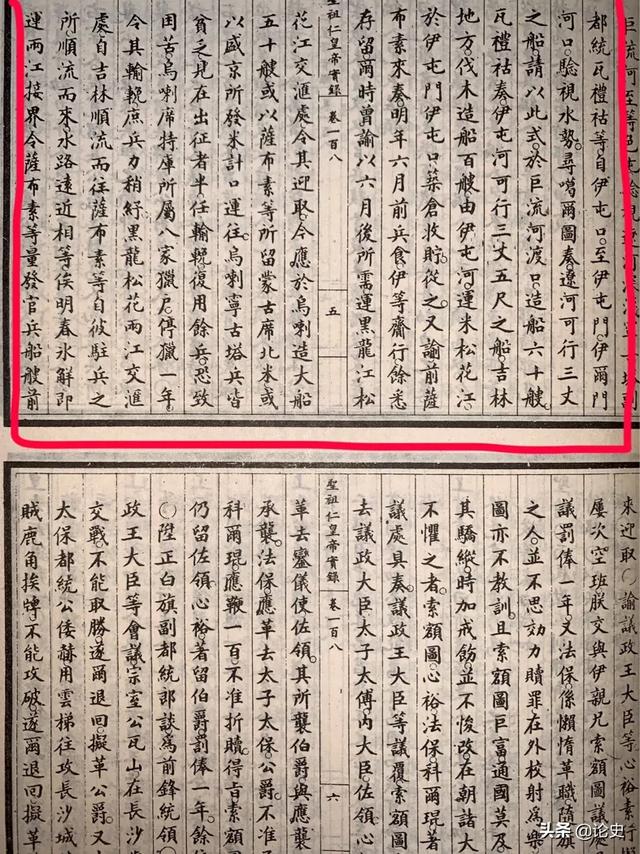 巨流河至等
都統瓦禮祜等自伊屯口至伊屯門伊爾門
河口驗視水勢尋噶爾圖奏遼河可行三丈
之船請以此式於巨流河渡口造船六十艘
瓦禮祜奏伊屯河可行三丈五尺之船吉林
地方伐木造船百艘由伊屯河運米松花江
於伊屯門伊屯口築倉收貯從之又諭前薩
布素來奏明年六月前兵食伊等齎行餘悉
存留爾時曾諭以六月後所需運黑龍江松
聖祖仁皇帝實錄 卷一百八 五
花江交滙處令其迎取今應於烏喇造大船
五十艘或以薩布素等所留蒙古席北米或
以盛京所發米計口運往烏喇寧古塔兵皆
貧乏見在出征者半任輸輓復用餘兵恐致
困苦烏喇席特庫所屬八家獵戶停獵一年
令其輸輓庶兵力稍紓黑龍松花兩江交滙
處自吉林順流而往薩布素等自彼駐兵之
所順流而來水路遠近相等俟明春氷解即
運兩江接界令薩布素等量發官兵船艘前
來迎取○諭議政王大臣等心裕素行
屢次空班朕交與伊親兄索額圖議
議罰俸一年又法保係懶惰革職隨旗
之人並不思効力贖罪在外校射為樂
圖亦不教訓且索額圖巨富通國莫及
其驕縱時加戒飭並不悛改在朝諸大
不懼之者索額圖心裕法保科爾琨著
議處具奏議政王大臣等議覆索額圖
去議政大臣太子太傅內大臣佐領心
聖祖仁皇帝實錄 卷一百八 六
革去鑾儀使佐領其所襲伯爵與應襲
承襲法保應革去太子太保公爵不准
科爾琨應鞭一百不准折贖得旨索額
仍留佐領心裕著留伯爵罰俸一年餘
○陞正白旗副都統郎談為前鋒統領
政王大臣等會議宗室公瓦山在長沙
交戰不能取勝遂爾退回擬革公爵又
太保都統公倭赫用雲梯往攻長沙城
賊鹿角挨牌不能攻破遂爾退回擬革
头条 @论史